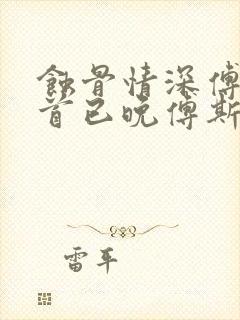 蝕骨情深傅
首已晚傅斯
雷平